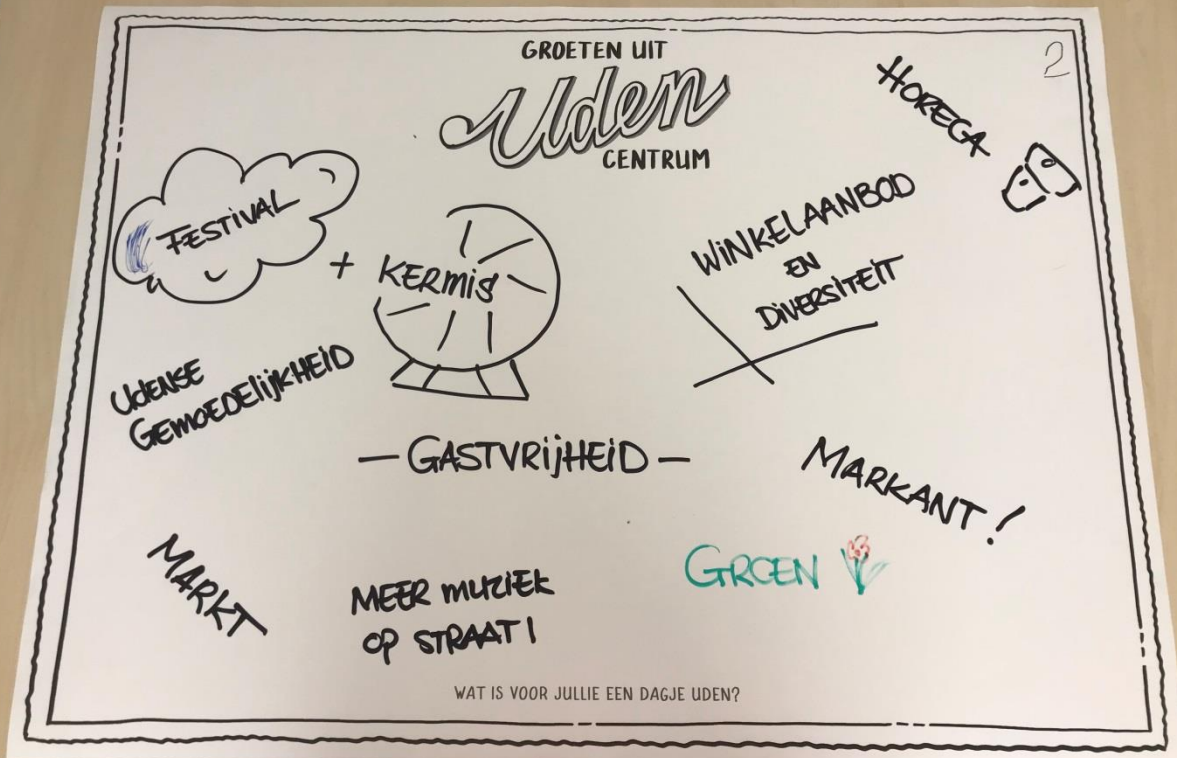 GROETEN UIT
Uden
CENTRUM
2
HORECA
FESTIVAL
+ KERMIS
WINKELAANBOD
EN
DIVERSITEIT
UDENSE
GEMOEDELIJKHEID
— GASTVRIJHEID —
MARKANT!
MARKT
MEER MUZIEK
OP STRAAT!
GROEN
WAT IS VOOR JULLIE EEN DAGJE UDEN?